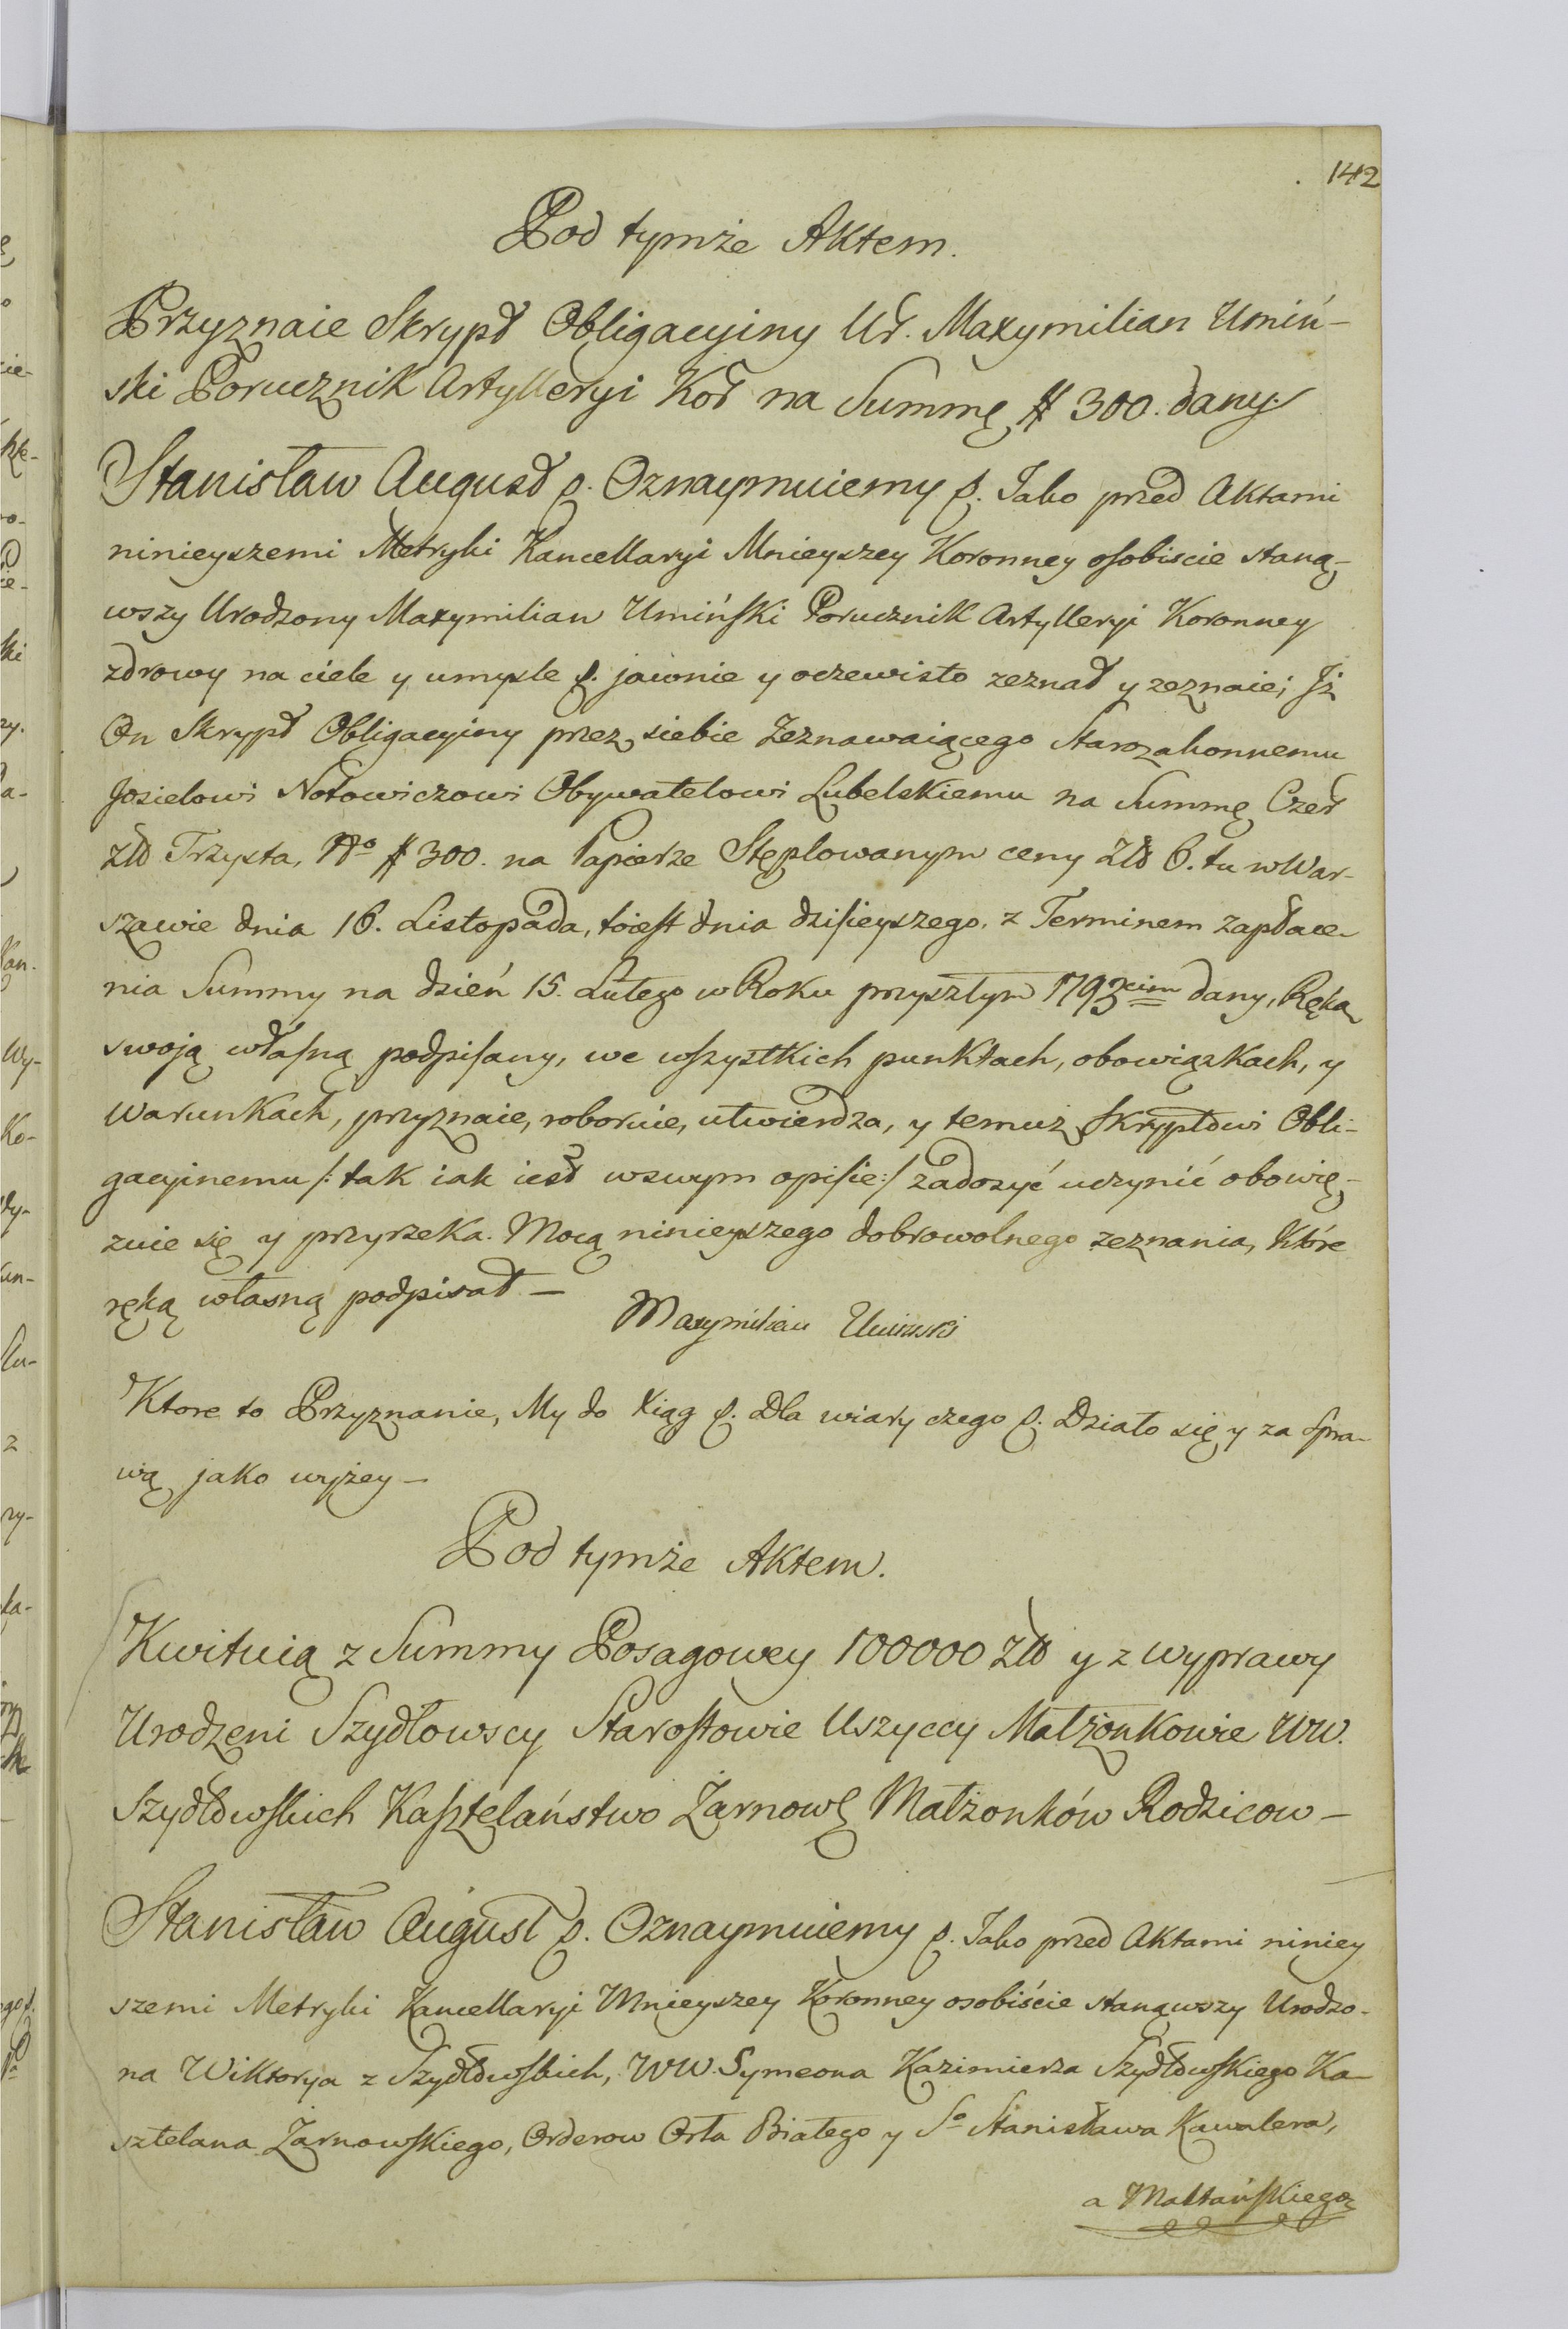 142
Pod tymże Aktem.
Przyznaie Skrypt Obligacyiny Ur. Maxymilian Umiń-
ski Porucznik Artylleryi Kor na Summę # 300. dany.
Stanisław August p. Oznaymuiemy p. Jako przed Aktami
ninieyszemi Metryki Kancellaryi Mnieyszey Koronney osobiscie staną-
wszy Urodzony Maxymilian Umiński Porucznik Artylleryi Koronney
zdrowy na ciele y umysle p. jawnie y oczewisto zeznał y zeznaie; Iż
On Skrypt Obligacyiny przez siebie Zeznawaiącego Starozakonnemu
Josielowi Notowiczowi Obywatelowi Lubelskiemu na Summę Czer
Złł Trzysta, No # 300. na Papierze Stęplowanym ceny Złł 6. tu w War-
szawie dnia 16. Listopada, toiest dnia dzisieyszego, z Terminem zapłace-
nia Summy na dzień 15. Lutego w Roku przyszłym 1793cim dany, Ręką
swoją własną podpisany, we wszystkich punktach, obowiązkach, y
warunkach, przyznaie, roboruie, utwierdza, y temuż Skryptowi Obli-
gacyinemu /: tak iak iest w swym opisie :/ zadosyć uczynić obowię-
zuie się y przyrzeka. Mocą ninieyszego dobrowolnego zeznania, które
ręką własną podpisał –
Maxymilian Umiński
Ktore to Przyznanie, My do Xiąg p. Dla wiary czego p. Działo się y za Spra-
wą jako wyżey –
Pod tymże Aktem.
Kwituią z Summy Posagowey 100000 Złł y z wyprawy
Urodzeni Szydłowscy Starostowie Uszyccy Małżonkowie WW.
Szydłowskich Kasztelaństwo Żarnow Małżonków Rodzicow –
Stanisław August p. Oznaymuiemy p. Jako przed Aktami niniey
szemi Metryki Kancellaryi Mnieyszey Koronney osobiście stanąwszy Urodzo-
na Wiktorya z Szydłowskich, WW. Symeona Kazimierza Szydłowskiego Ka-
sztelana Żarnowskiego, Orderow Orła Białego y So Stanisława Kawalera,
a Maltańskiego